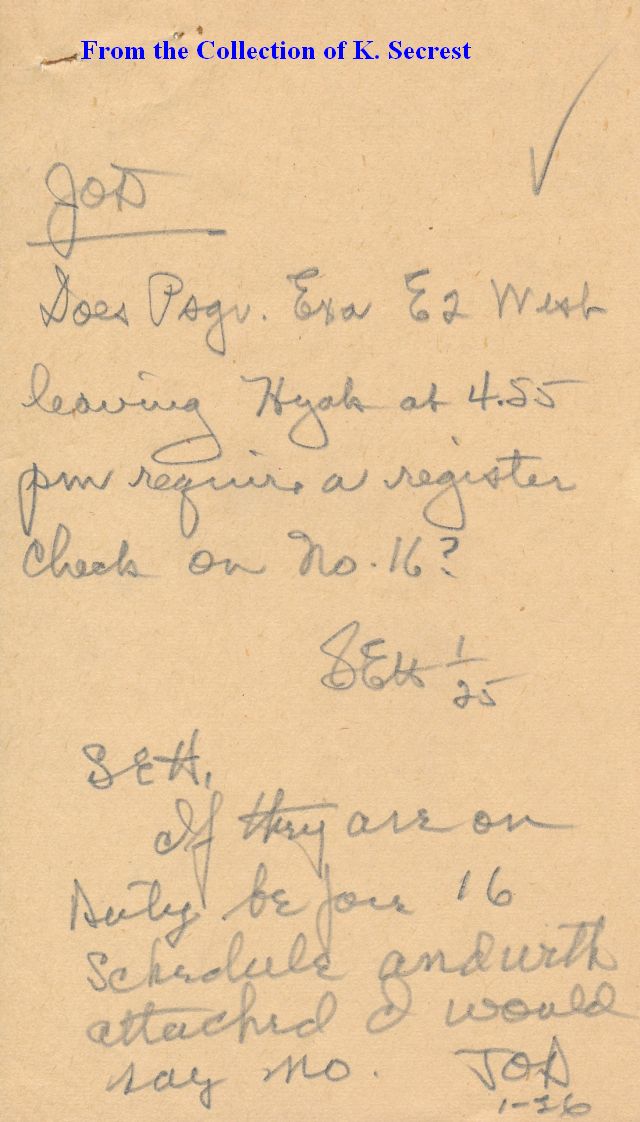 From the Collection of K. Secrest
JOD
Does Psgr. Exa E2 West
leaving Hyak at 4.55
pm require a register
check on No. 16?
SEH 1/25
SEH.
If they are on
Duty before 16
Schedule and with
attached I would
say no. JOD
1-26